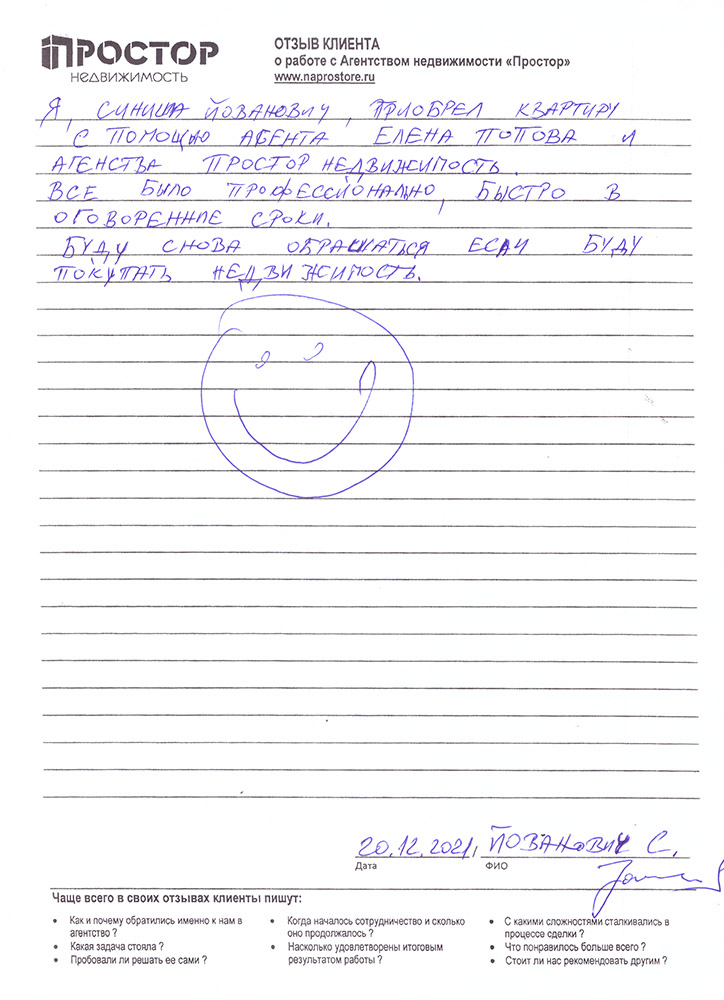 ПРОСТОР
НЕДВИЖИМОСТЬ
ОТЗЫВ КЛИЕНТА
о работе с Агентством недвижимости «Простор»
www.naprostore.ru
Я, СИНИША ЙОВАНОВИЧ, ПРИОБРЕЛ КВАРТИРУ
С ПОМОЩЬЮ АГЕНТА ЕЛЕНА ПОПОВА И
АГЕНСТВА ПРОСТОР НЕДВИЖИМОСТЬ.
ВСЕ БЫЛО ПРОФЕССИОНАЛЬНО, БЫСТРО В
ОГОВОРЕННЫЕ СРОКИ.
БУДУ СНОВА ОБРАЩАТЬСЯ ЕСЛИ БУДУ
ПОКУПАТЬ НЕДВИЖИМОСТЬ.
20.12.2021, ЙОВАНОВИЧ С.
Дата ФИО
Чаще всего в своих отзывах клиенты пишут:
• Как и почему обратились именно к нам в
агентство ?
• Какая задача стояла ?
• Пробовали ли решать ее сами ?
• Когда началось сотрудничество и сколько
оно продолжалось ?
• Насколько удовлетворены итоговым
результатом работы ?
• С какими сложностями сталкивались в
процессе сделки ?
• Что понравилось больше всего ?
• Стоит ли нас рекомендовать другим ?